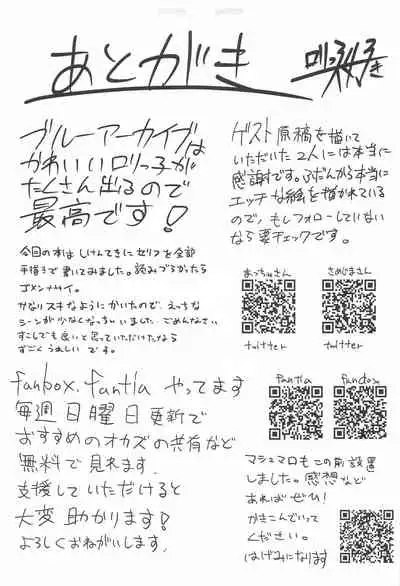 あとがき
ブルーアーカイブは
かわいいロリっ子が
たくさん出るので
最高です!
今回の本はしけんてきにセリフを全部
手描きで書いてみました。読みづらかったら
ゴメンナサイ。
かなりスキなようにかいたので、えっちな
シーンが少なくなっちゃいました。ごめんなさい
すこしでも良いと思っていただけたなら
すごくうれしいです。
fanbox、fantia やってます
毎週日曜日更新で
おすすめのオカズの共有など
無料で見れます。
支援していただけると
大変助かります!
よろしくおねがいします。
ゲスト原稿を描いて
いただいた2人には本当に
感謝です。ふだんから本当に
エッチな絵を描かれている
ので、もしフォローしていない
なら要チェックです。
あっちゅさん
さめじまさん
twitter
twitter
fantia
fanbox
マシュマロもこの前設置
しました。感想など
あればぜひ!
かきこんでいって
ください。
はげみになります